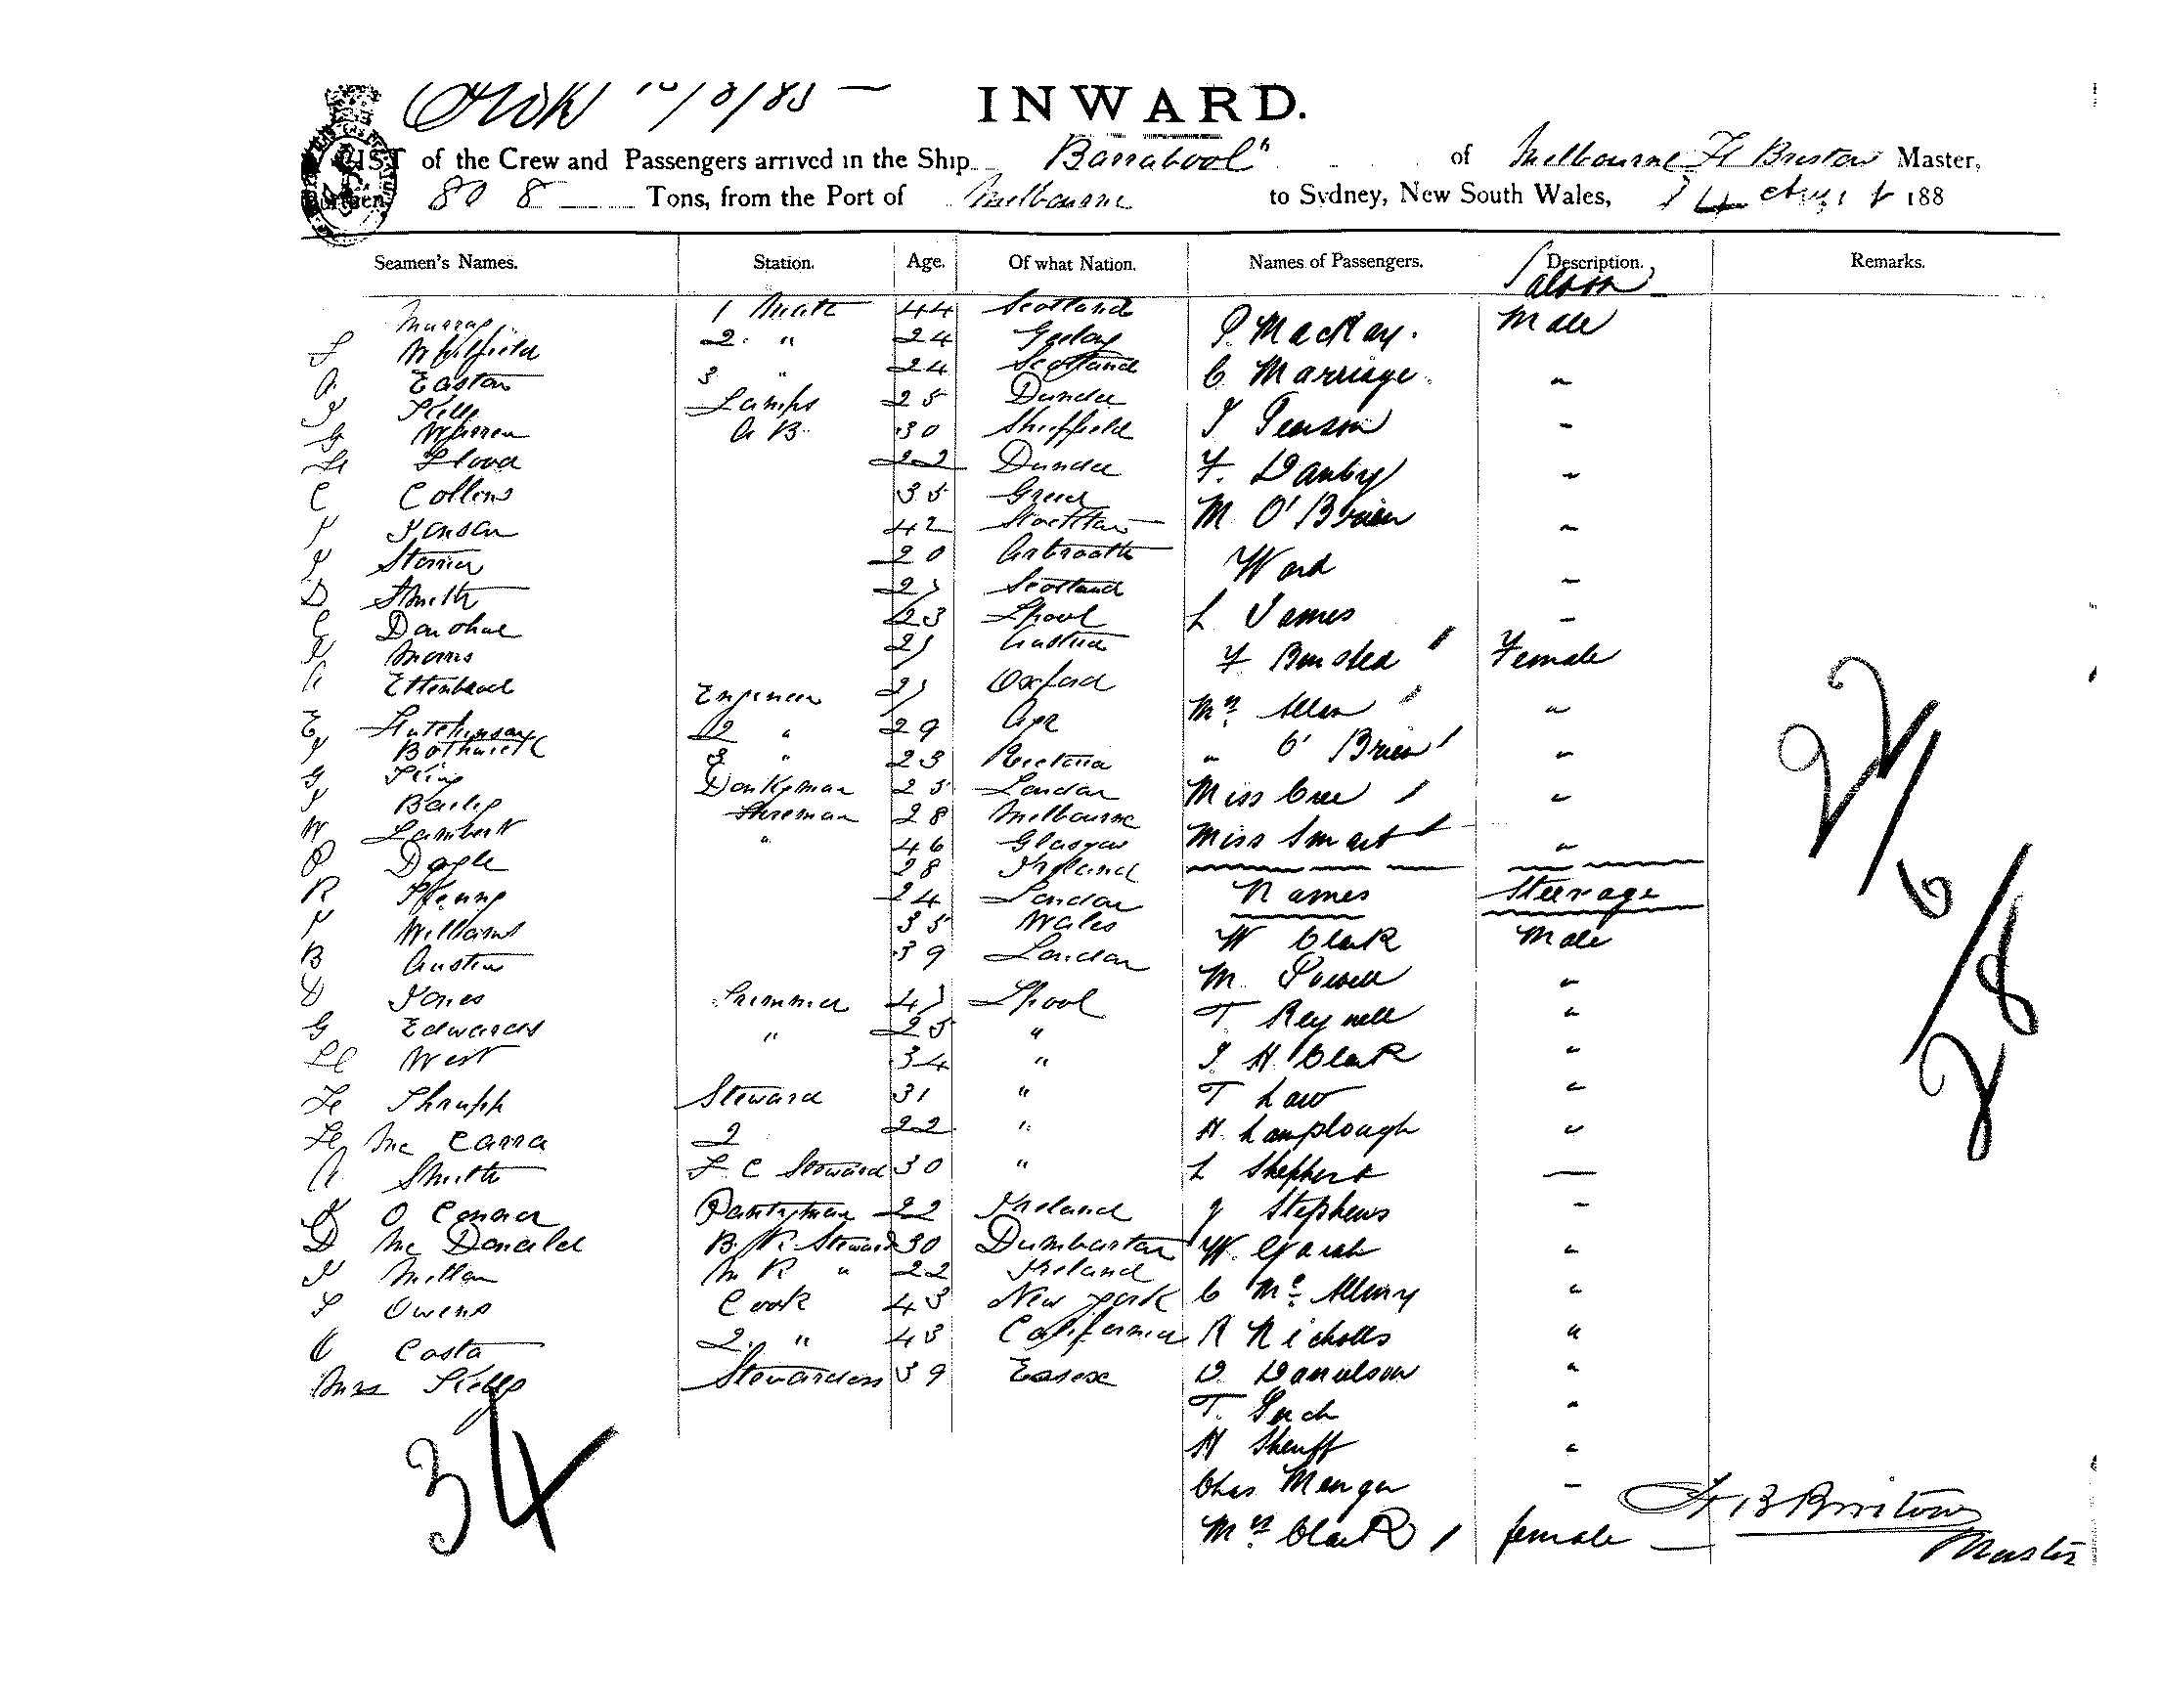 INWARD.
LIST of the Crew and Passengers arrived in the Ship Barrabool" of Melbourne H Bristow Master,
Burthen 808 Tons, from the Port of Melbourne to Sydney, New South Wales, 14 Augst 188
Seamen's Names. Station. Age. Of what Nation. Names of Passengers. Description. Remarks.
Saloon
Murray 1 Mate 44 Scotland P. MacKay. Male
2. " 24 Geelong
A Easton 3 " 24 Scotland C Marriage "
Kelly Lamps 25 Dundee
G Warren A B 30 Sheffield Pearson "
H Flood 22 Dundee F. Danby "
C Collins 35 Greece M O'Brien "
J Jansen 42
Storrier 20 Arbroath Ward "
D Smith 21 Scotland
C Donohue 23 Lpool L James "
J Morris 21 Austria F Binsted Female
A 21 Oxford
E Hutchinson Engineer 29 Ayr Mrs Allan "
J Bothwick 2 " 23 Victoria " O'Brien "
G King 3 " 25 London
J Bailey Donkeyman 28 Melbourne Miss Cree "
W Lambert Fireman 46 Glasgow Miss Smart "
P Doyle " 28 Ireland
R 24 London Names Steerage
J Williams 35 Wales W Clark Male
B Austin 39 London
D Jones Trimmer 41 Lpool M. Powell "
G Edwards " 25 " T. Reynell "
West 34 " J. H. Clark "
H Thrupp Steward 31 " T Law "
H Mc Carra 2 22 " H. Lamplough "
A Smith F C Steward 30 " L Shephert —
J O Connor Pantryman 22 Ireland J Stephens "
D Mc Donald B. R. Steward 30 Dumbarton W. "
J Millan M R " 22 Ireland
Owens Cook 43 New York C Mc Alleny "
C Costa 2. " 43 California R Nicholls "
Mrs Kelly Stewardess 39 Essex D Danielson "
T. "
H Sheriff "
Chas Menger "
Mrs Clark female
34
22/6
28/
H B Bristow
Master